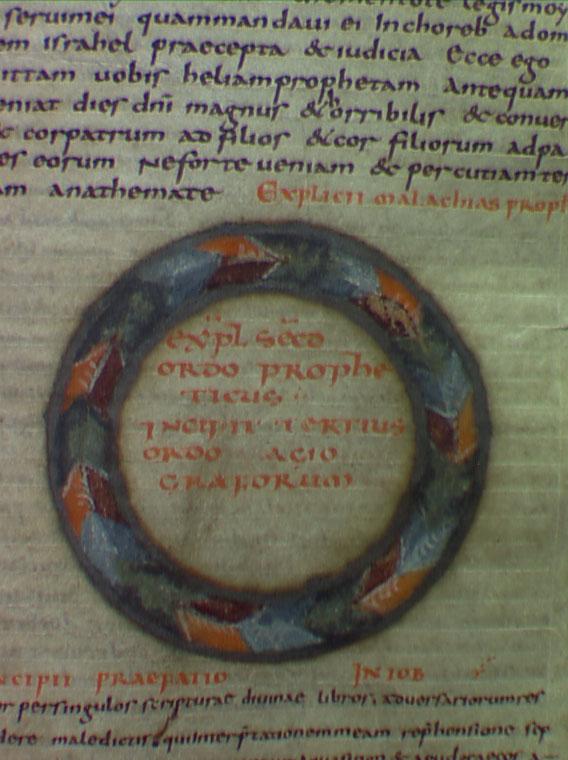 seruimei quammandaui ei Inchoreb adom
em israhel praecepta & iudicia Ecce ego
ittam uobis heliamprophetam Antequam
eniat dies dñi magnus & horribilis & conuer
corpatrum ad filios & cor filiorum adpa
es eorum Neforte ueniam & percutiamter
am anathemate Explicit malachias proph
expl secd
ordo prophe
ticus
Incipit tertius
ordo agio
graforum
ncipit praefatio In iob
or persingulos scripturae diuinae libros aduersariorumres
dere maledictis quiinterp̄tationemmeam rep̄hensione sep